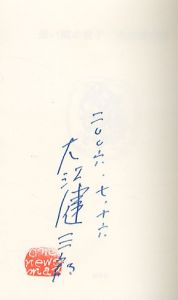 二〇〇六・七・十六
大江健三郎
news